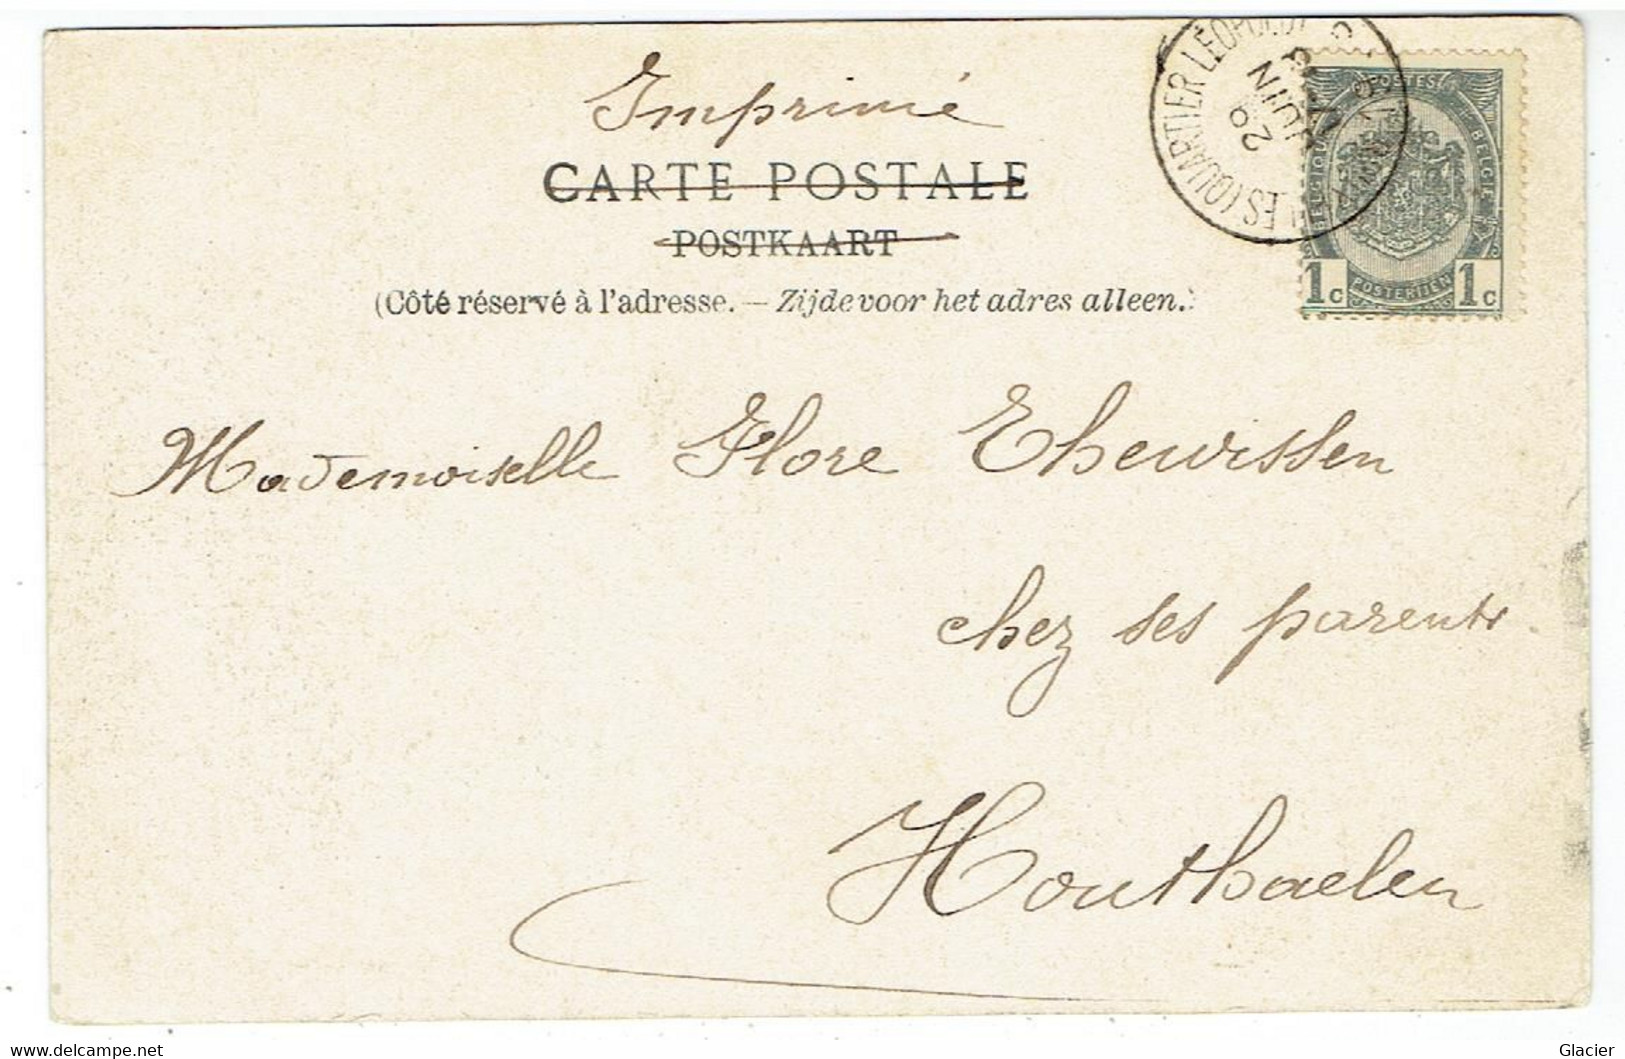 Imprimé
CARTE POSTALE
POSTKAART
(Côté réservé à l'adresse. — Zijde voor het adres alleen.)
POSTES
BELGIE
1c POSTERIJEN 1c
(QUARTIER LÉOPOLD)
29 JUIN
Mademoiselle Flore Thewissen
chez ses parents
Houthaelen
delcampe.net
Glacier